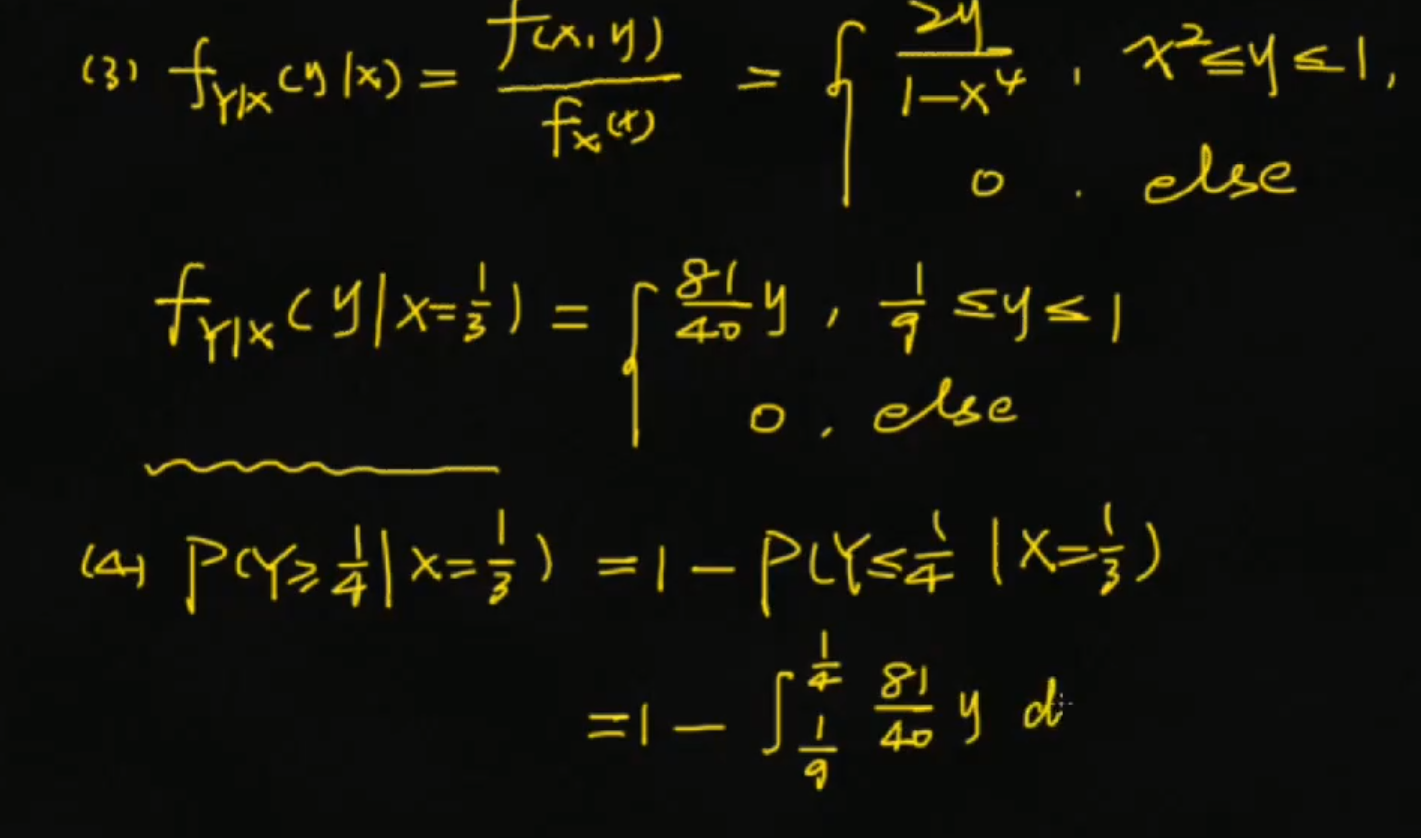 (3) f_{Y|X}(y|x) = \frac{f(x,y)}{f_X(x)} = \begin{cases} \frac{2y}{1-x^4}, & x^2 \le y \le 1, \\ 0, & else \end{cases}
f_{Y|X}(y|x=\frac{1}{3}) = \begin{cases} \frac{81}{40}y, & \frac{1}{9} \le y \le 1 \\ 0, & else \end{cases}
(4) P(Y \ge \frac{1}{4} | X=\frac{1}{3}) = 1 - P(Y \le \frac{1}{4} | X=\frac{1}{3})
= 1 - \int_{\frac{1}{9}}^{\frac{1}{4}} \frac{81}{40} y d